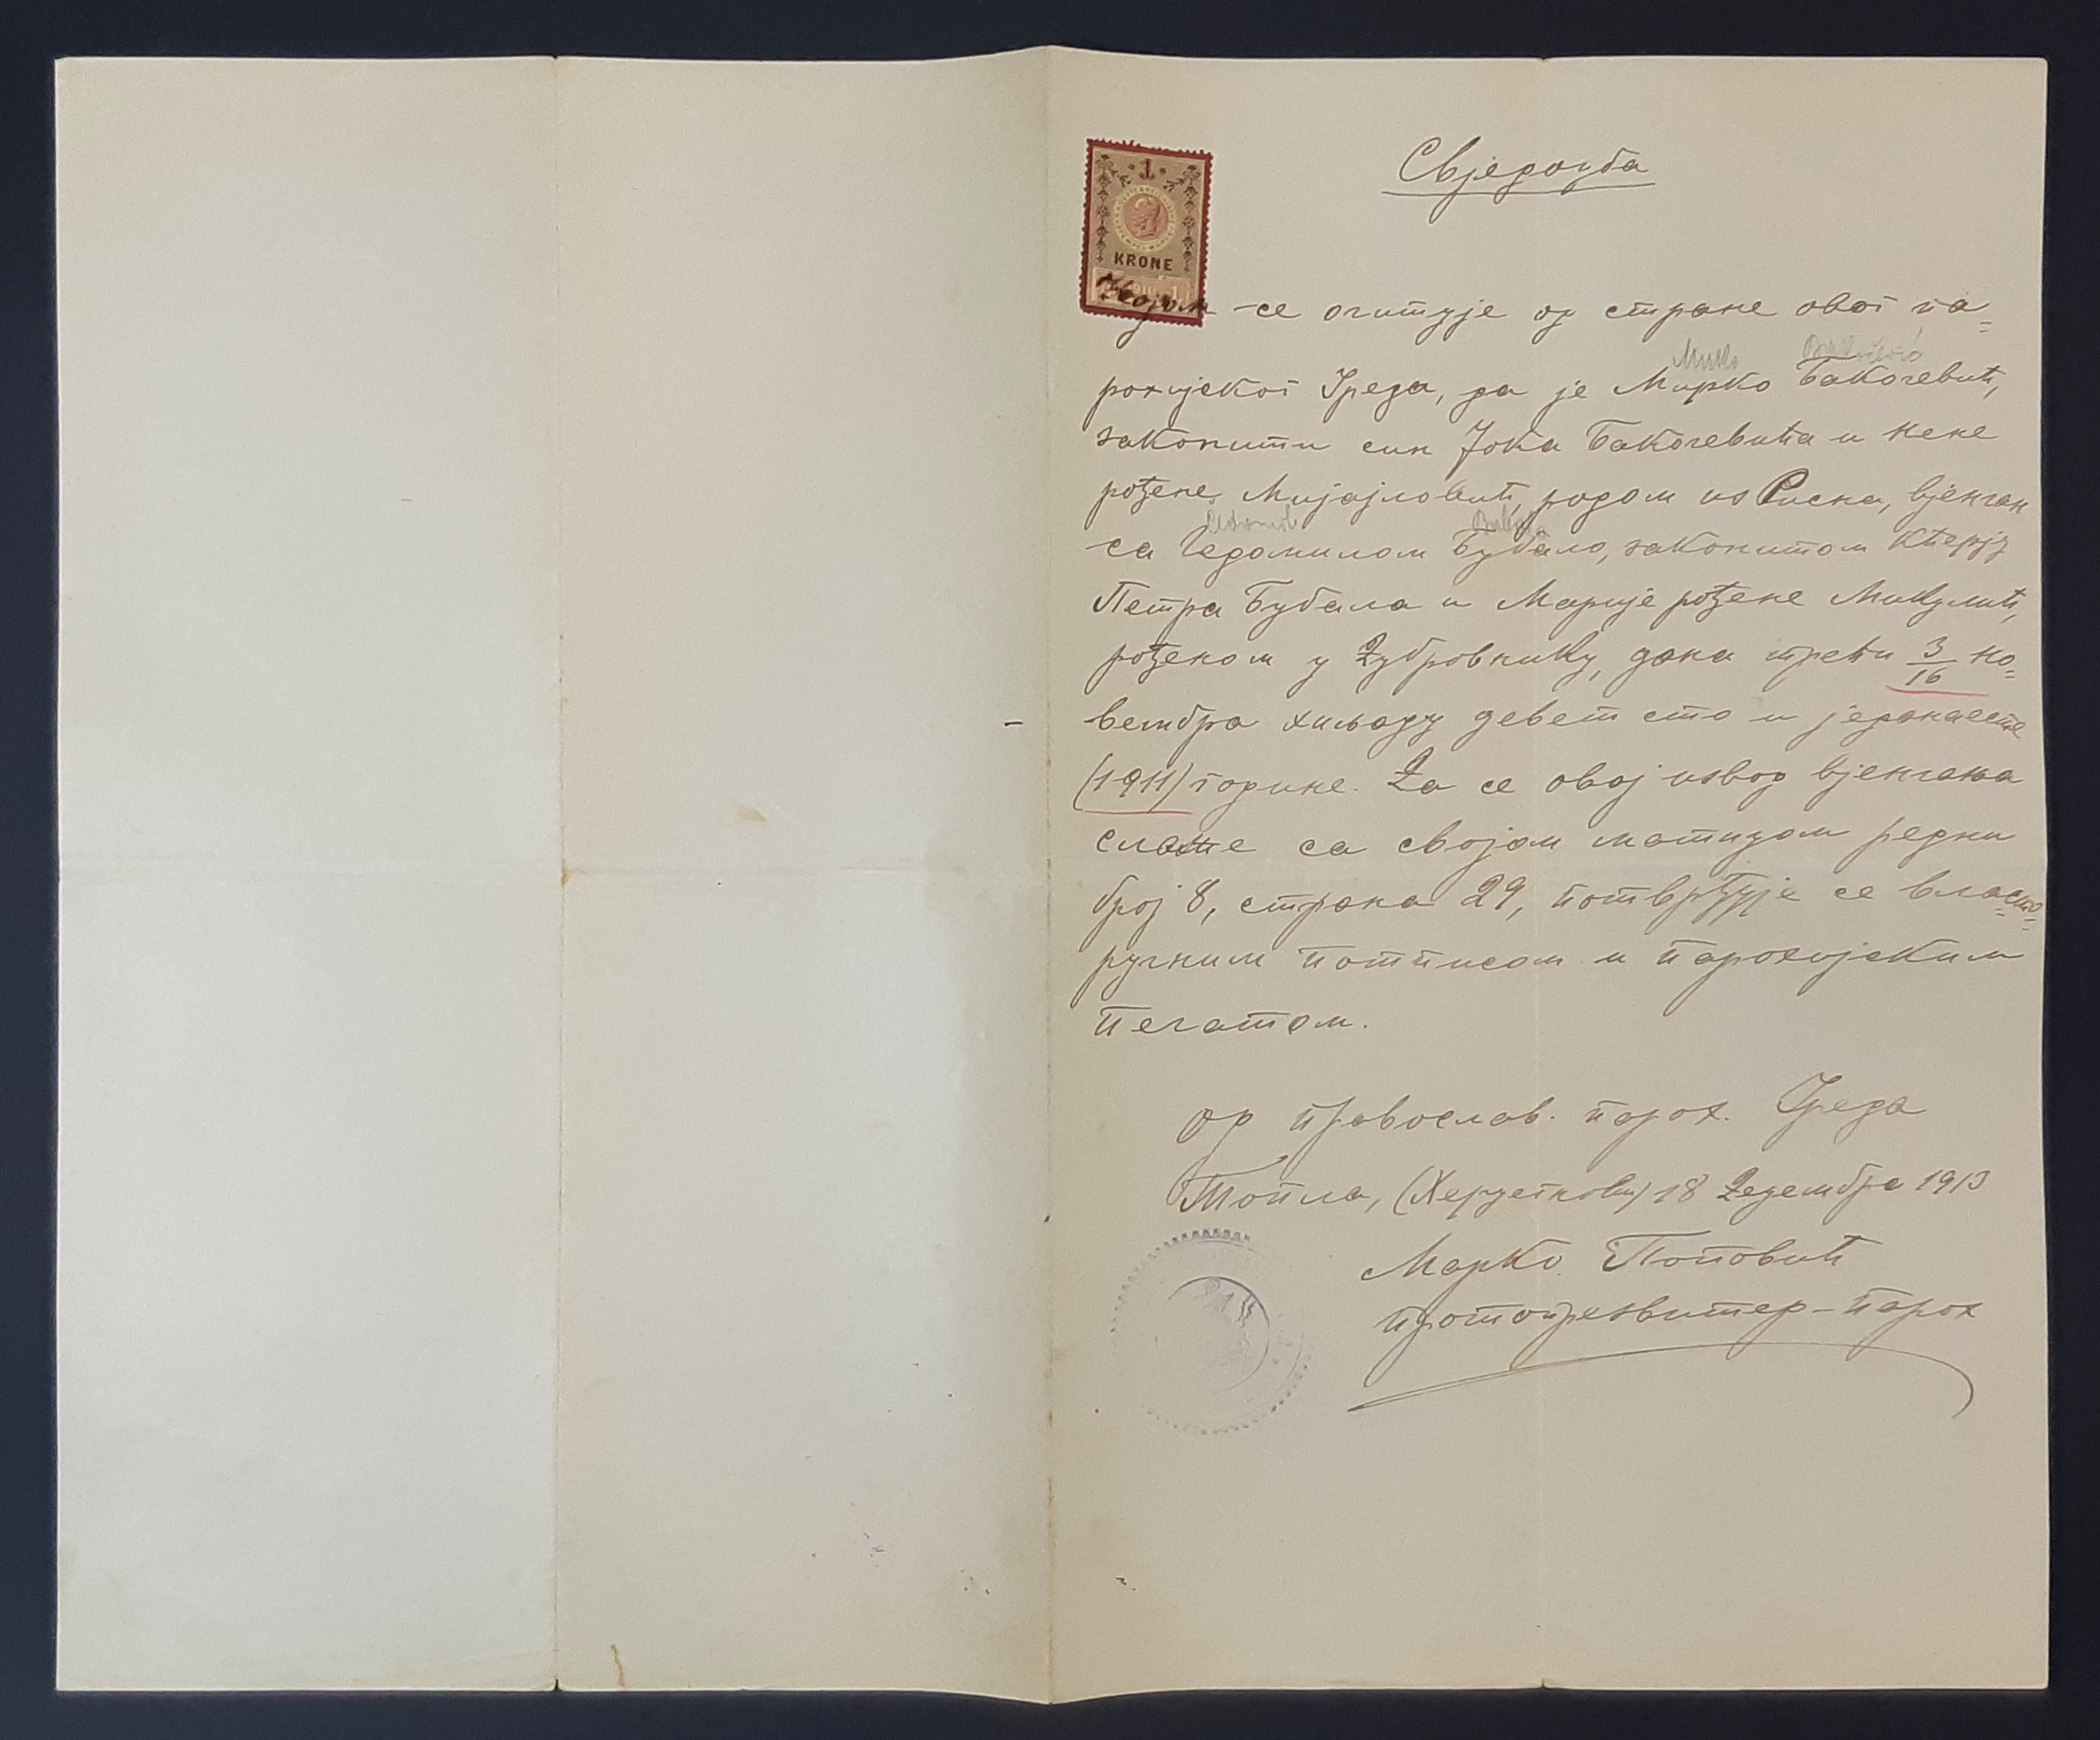 Свједоџба
1
KRONE
Којом се очитује од стране овог па=
рохијског Уреда, да је Мирко Бакочевић,
законити син Јока Бакочевића и Неке
рођене Мијајловић, родом из Рисна, вјенчан
са Чедомилом Бубало, законитом кћерју
Петра Бубала и Марије рођене Микулић,
рођеном у Дубровнику, дана трећи 3/16 но=
вембра хиљаду девет сто и једанаесте
(1911) године. Да се овај извод вјенчања
слаже са својом матицом редни
број 8, страна 29, потврђује се власто=
ручним потписом и парохијским
печатом.
Од православ. парох. Уреда
Топла, (Херцегнови) 18 Децембра 1913
Марко Поповић
протопрезвитер-парох